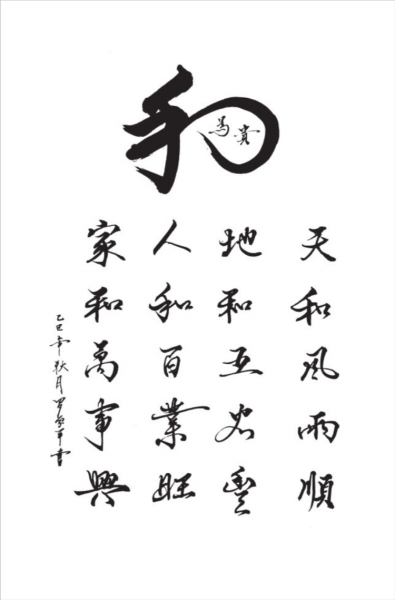 和
為貴
天和風雨順
地和五谷豐
人和百業旺
家和萬事興
乙巳年秋月